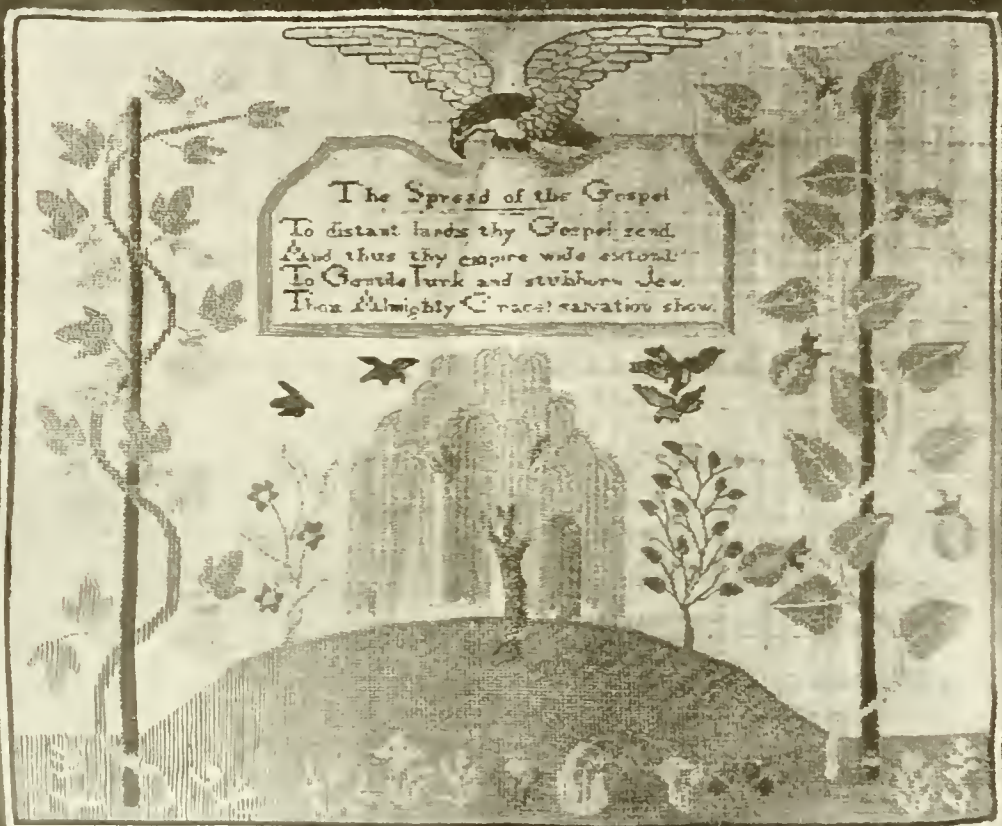 The Spread of the Gospel
To distant lands thy Gospel send,
And thus thy empire wide extend:
To Gentile Turk and stubborn Jew,
Thou Almighty Grace! salvation show.